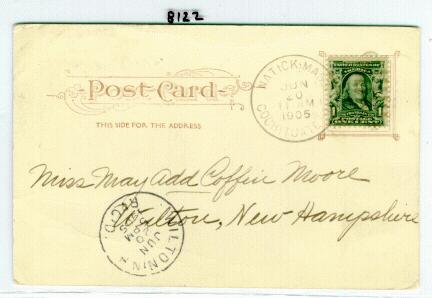 8122
Post Card
THIS SIDE FOR THE ADDRESS
NATICK, MA
JUN
20
11 AM
1905
COCHITUATE
UNITED STATES OF AMERICA
POSTAGE
1 ONE CENT 1
Miss May Add Coffin Moore
Wilton, New Hampshire
WILTON N H
JUN
PM
1905
REC'D.